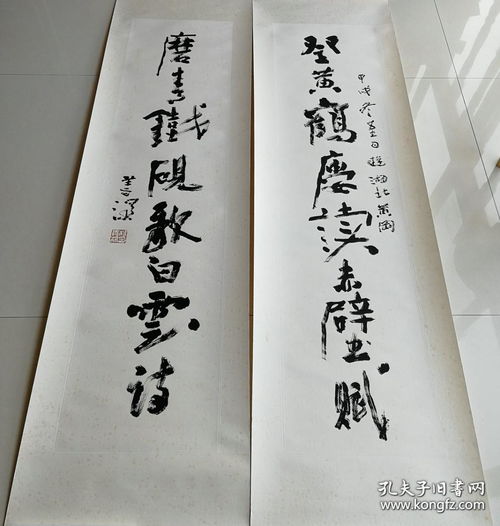 登黄鶴慶读赤壁賦
甲戌冬至日遊湖北黄岡
磨青鐵硯歌白雲诗
孔夫子旧书网
www.kongfz.com